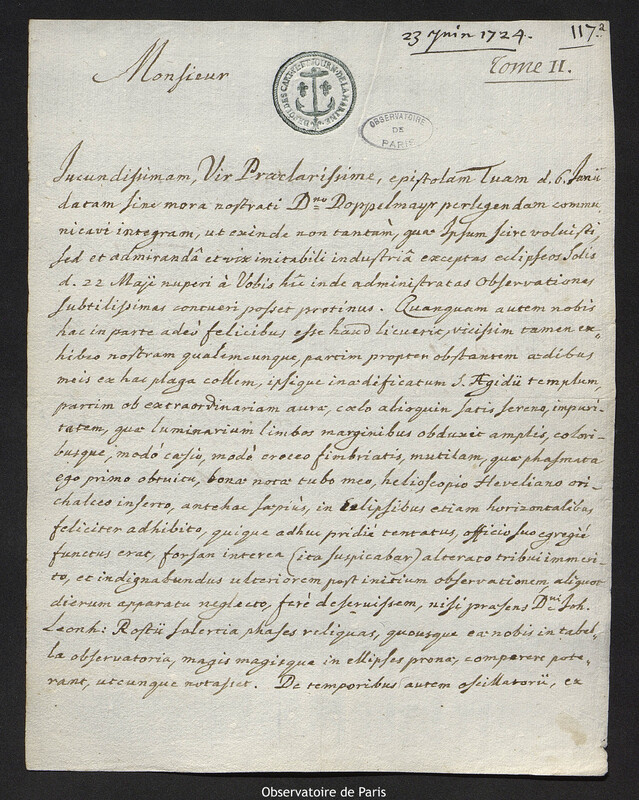 23 Juin 1724.
117.a
Tome II.
Monsieur
DEPOT DES CARTES ET JOURN. DE LA MARINE
OBSERVATOIRE
DE
PARIS
Jucundissimam, Vir Præclarissime, epistolam Tuam d. 6. Junii
datam sine mora nostrati Dno Doppelmayr perlegendam commu
nicavi integram, ut exinde non tantùm, quæ Ipsum scire voluisti
sed et admirandâ et vix imitabili industriâ exceptas eclipseos Solis
d. 22 Maji nuperi à Vobis hîc inde administratas Observationes
subtilissimas contueri posset protinus. Quanquam autem nobis
hac in parte adeò felicibus esse haud licuerit, vicissim tamen ex=
hibeo nostram qualemcunque, partim propter obstantem ædibus
meis ex hac plaga collem, ipsique inædificatum S. Ægidii templum,
partim ob extraordinariam auræ, cœlo alioquin satis sereno, impuri=
tatem, quæ luminarium limbos marginibus obduxit amplis, colori=
busque, modò cæsio, modò croceo fimbriatis, mutilam, quæ phasmata
ego primo obtuitu, bonæ notæ tubo meo, helioscopio Heveliano ori=
chalceo inserto, antehac sæpius, in Eclipsibus etiam horizontalibus
feliciter adhibito, quique adhuc pridie tentatus, officio suo egregiè
functus erat, forsan interea (ita suspicabar) alterato tribui immeri=
to, et indignabundus ulteriorem post initium observationem aliquot
dierum apparatu neglecto, ferè deseruissem, nisi præsens Dni Joh.
Leonh: Rostii solertia phases reliquas, quousque ex nobis in tabel=
la observatoria, magis magisque in ellipses prona, comparere pote=
rant, utcunque notasset. De temporibus autem oscillatorii, ex
Observatoire de Paris